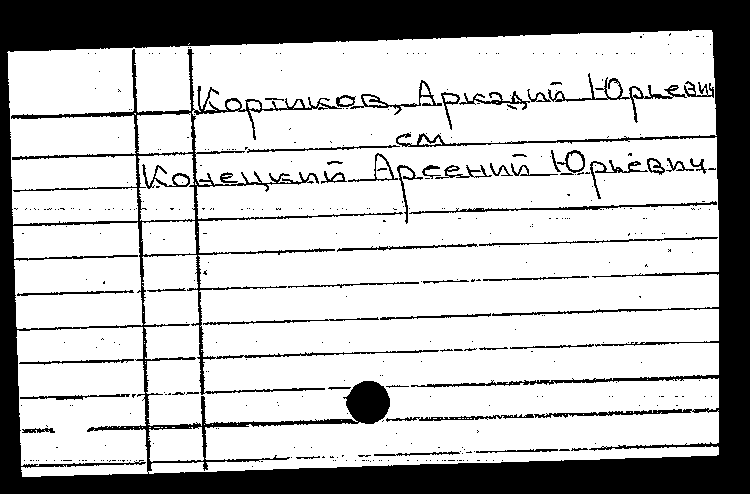 Кортиков, Аркадий Юрьевич
см
Конецкий Арсений Юрьевич